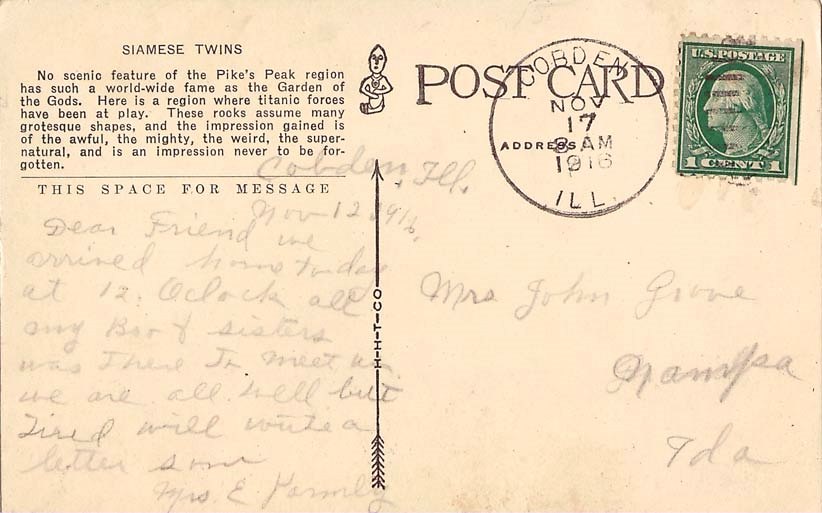 SIAMESE TWINS
No scenic feature of the Pike's Peak region
has such a world-wide fame as the Garden of
the Gods. Here is a region where titanic forces
have been at play. These rocks assume many
grotesque shapes, and the impression gained is
of the awful, the mighty, the weird, the super-
natural, and is an impression never to be for-
gotten.
THIS SPACE FOR MESSAGE
POST CARD
ADDRESS
COBDEN
NOV
17
8 AM
1916
ILL.
U.S. POSTAGE
1 CENT 1
H-H-T-CO
Cobden, Ill.
Nov 12 1916.
Dear Friend we
arrived home today
at 12. Oclock all
my Bro & sisters
was There To meet us
we are all well but
Tired will write a
letter soon
Mrs E
Mrs John Grove
Nampa
Ida